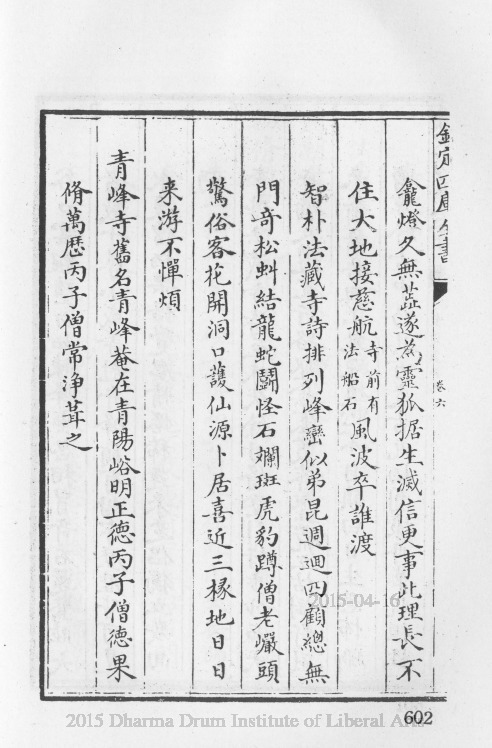 欽定四庫全書
卷六
龕燈久無蘂遂為靈狐据生滅信更事此理長不
住大地接慈航寺前有法船石風波卒誰渡
智朴法藏寺詩排列峰巒似弟昆週迴四顧總無
門奇松蚪結龍蛇鬭怪石斕斑虎豹蹲僧老巖頭
驚俗客花開洞口護仙源卜居喜近三椽地日日
来游不憚煩
青峰寺舊名青峰菴在青陽峪明正德丙子僧德果
脩萬歷丙子僧常淨葺之
2015-04-16
2015 Dharma Drum Institute of Liberal Arts
602